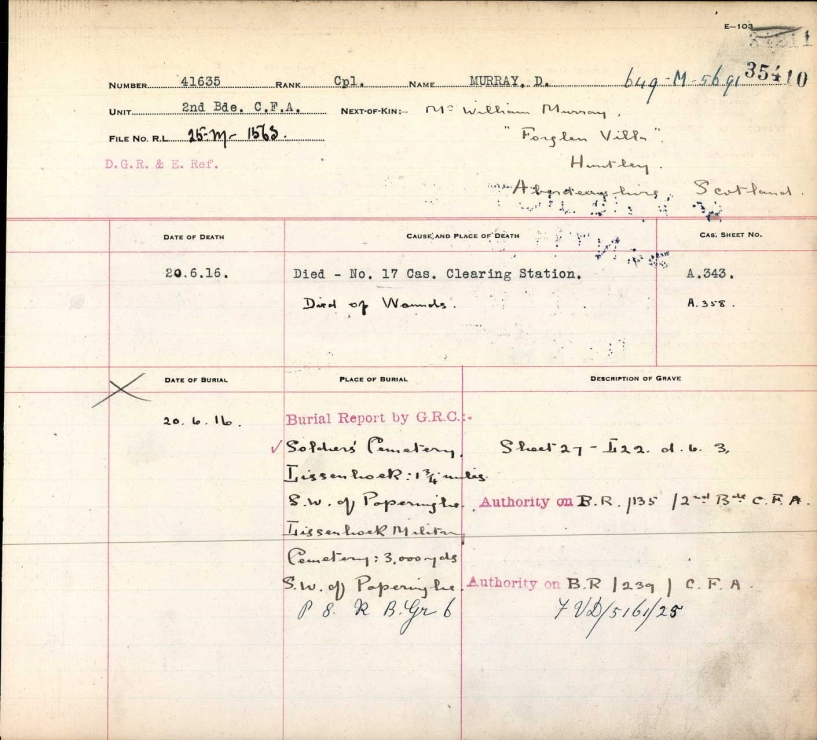 E-103
NUMBER 41635 RANK Cpl. NAME MURRAY, D. 649-M-5691 35410
UNIT 2nd Bde. C.F.A. NEXT-OF-KIN:- William Murray.
FILE NO. R.L. 25-M-1563. "Forglen Villa".
D.G.R. & E. Ref. Huntley.
Aberdeenshire, Scotland.
DATE OF DEATH CAUSE AND PLACE OF DEATH CAS. SHEET NO.
20.6.16. Died - No. 17 Cas. Clearing Station. A.343.
Died of Wounds. A.358.
DATE OF BURIAL PLACE OF BURIAL DESCRIPTION OF GRAVE
20.6.16. Burial Report by G.R.C.:-
Soldiers' Cemetery, Sheet 27 - L22. d. 6. 3.
Lissenhoek: 1¾ miles
S.W. of Poperinghe. Authority on B.R. /135 / 2nd Bde C.F.A.
Lissenhoek Military
Cemetery: 3,000 yds
S.W. of Poperinghe. Authority on B.R / 239 / C.F.A.
P 8. R B. Gr 6 7 VD/5161/25